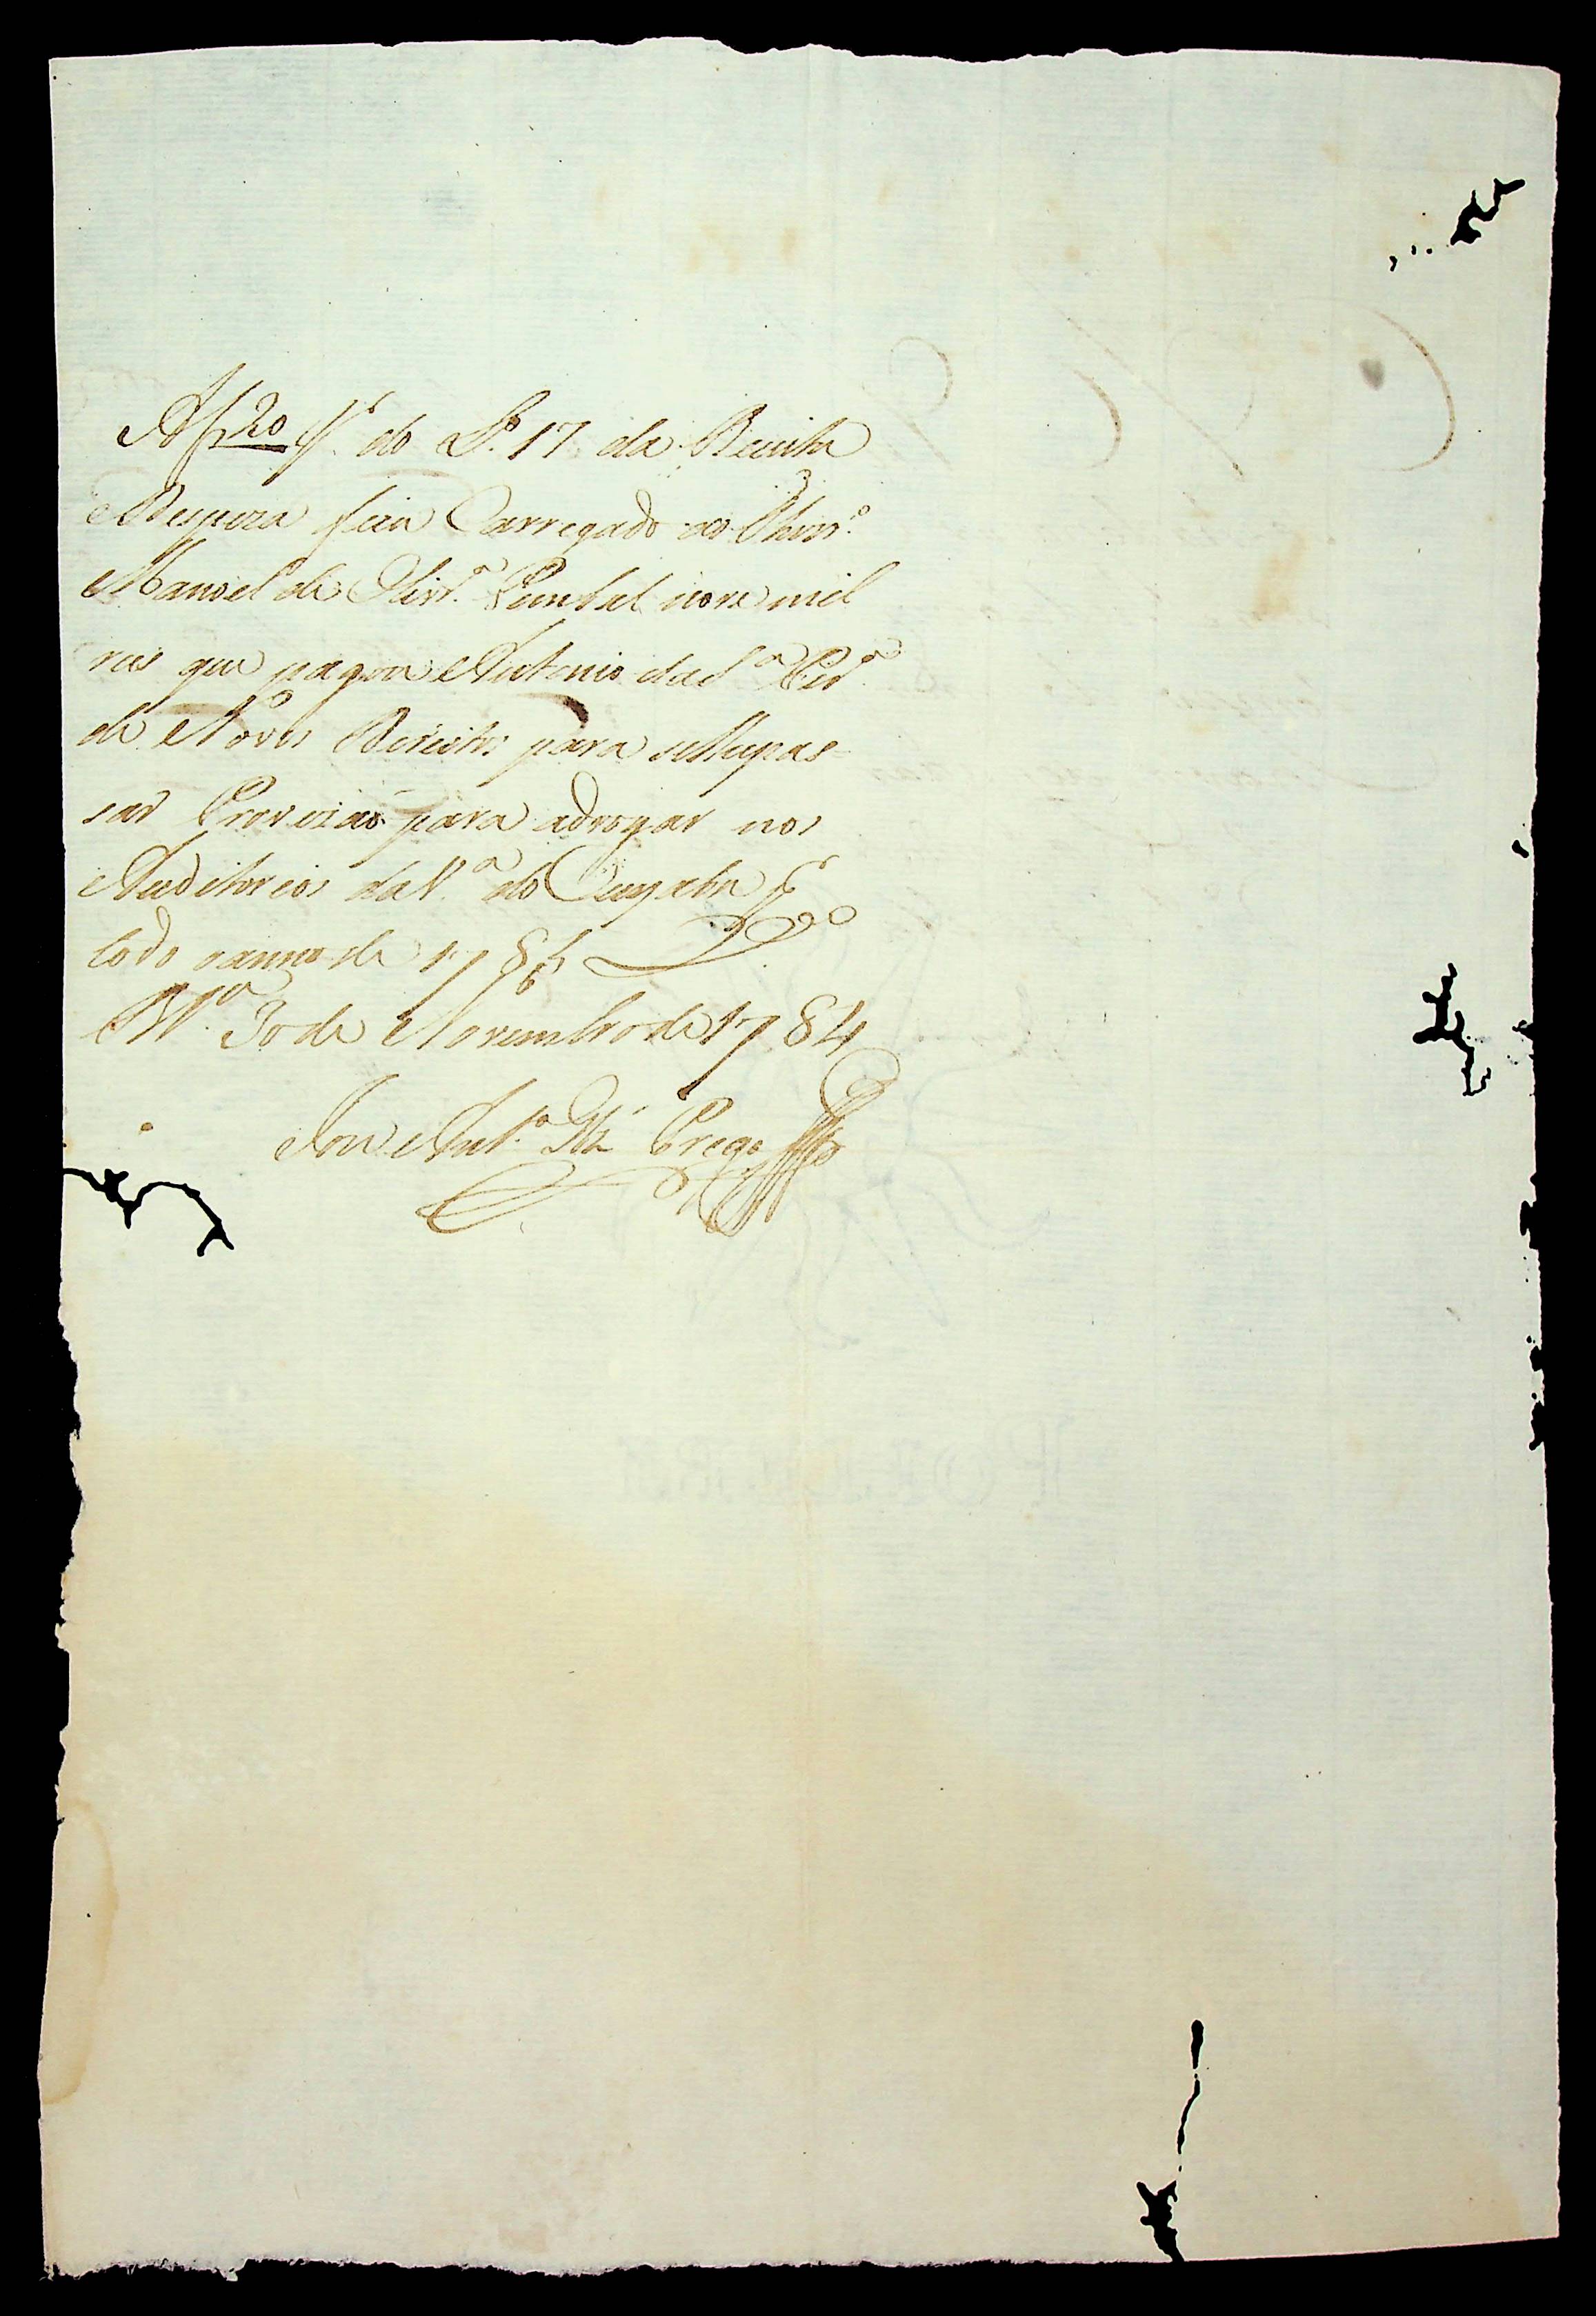 Af 20 V.º do L.º 17 da Receita
e Despeza fica Carregado ao Thezr.º
Manoel de Olivr.ª Pombal nove mil
reis que pagou Antonio da S.ª Per.ª
de Novos Direitos para selhe pas-
sar Provizaõ para advogar nos
Auditorios da V.ª do Cuyaba p.r
todo o anno de 1786
V.ª 30 de Novembro de 1784
Joze Ant.º Prego